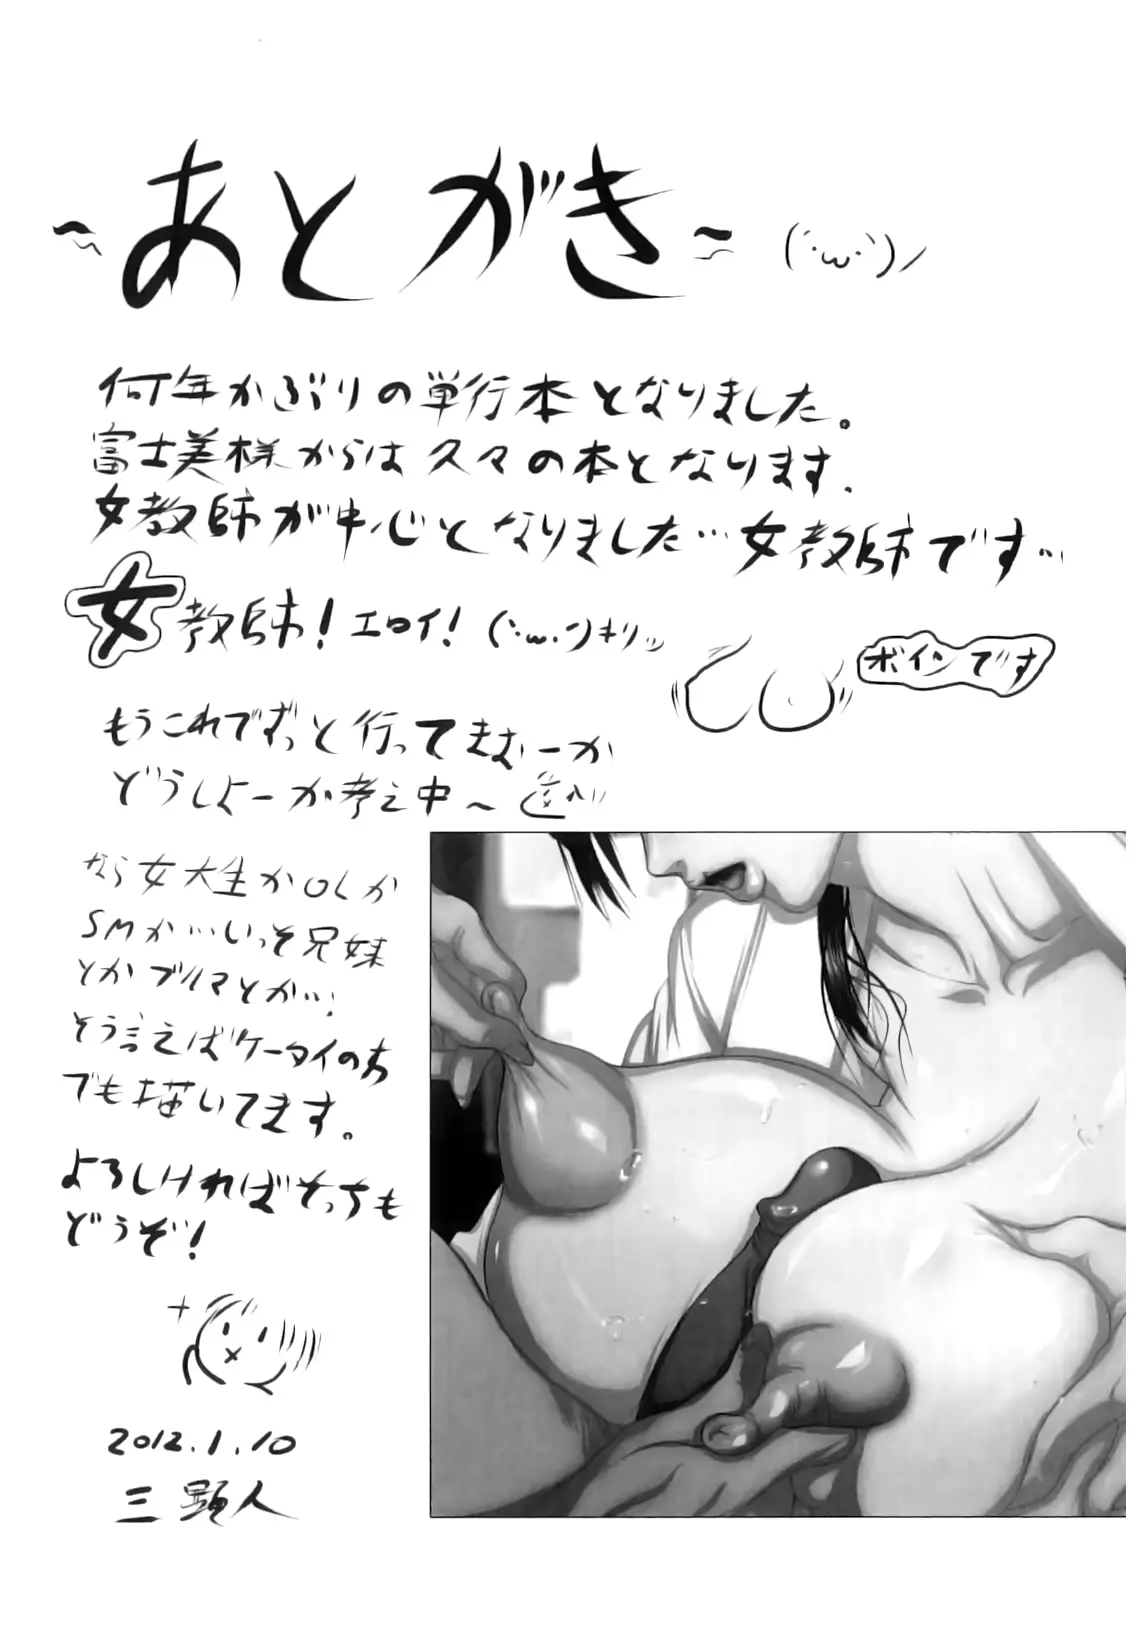 ～あとがき～ (´・ω・`)ノ
何年かぶりの単行本となりました。
富士美様からは久々の本となります.
女教師が中心となりました…女教師です…
女教師！エロイ！(´・ω・`)キリッ
ボインです
もうこれでずっと行ってきむーか
どうしよーか考え中～
なら女大生かOLか
SMか…いっそ兄妹
とかブルマとか…！
そう言えばケータイの方
でも描いてます。
よろしければそっちも
どうぞ！
2012.1.10
三顕人